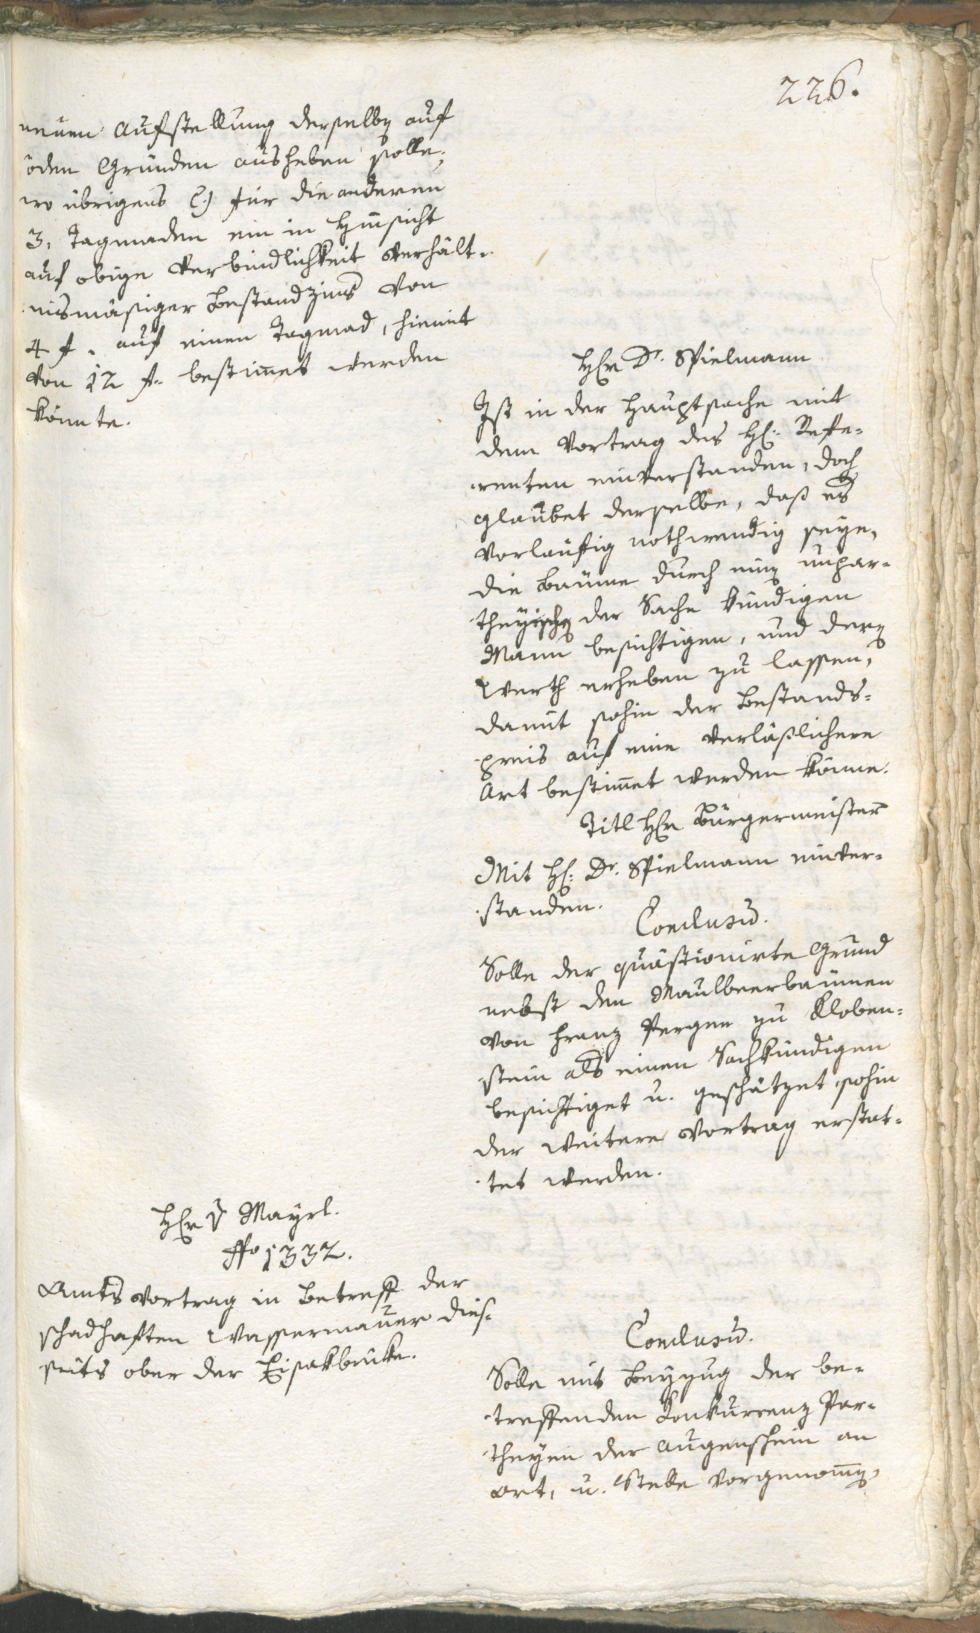 226.
neuen Aufstellung derselben auf
öden Gründen ausheben solle;
wo übrigens C.) für die anderen
3. Tagmaden ein in Hinsicht
auf obige Verbindlichkeit verhält-
nismäßiger Bestandzins von
4 f. auf einen Tagmad, hiemit
von 12 f. bestimmet werden
könnte.
Hr. Dr. Spielmann
Ist in der Hauptsache mit
dem Vortrag des H: Refe-
renten einverstanden, doch
glaubet derselbe, daß es
vorläufig nothwendig seye,
die Bäume durch einen unpar-
theyischen der Sache kündigen
Mann besichtigen, und deren
Werth erheben zu lassen,
damit sohin der Bestands-
preis auf eine verläßlichere
Art bestimmet werden könne.
Titl Hr. Bürgermeister
Mit H: Dr. Spielmann einver-
standen.
Conclusum.
Solle der quästionirte Grund
nebst den Maulbeerbäumen
von Franz Perger zu Kloben-
stein als einen Sachkündigen
besichtiget u. geschätzet sohin
der weitere Vortrag erstat-
tet werden.
Hr. v Mayrl.
No 1332.
Amtsvortrag in Betreff der
schadhaften Wassermauer dies-
seits ober der Eisakbrüke.
Conclusum.
Solle mit Beyzug der be-
treffenden Konkurrenz Par-
theyen der Augenschein an
Ort, u. Stelle vorgenommen,